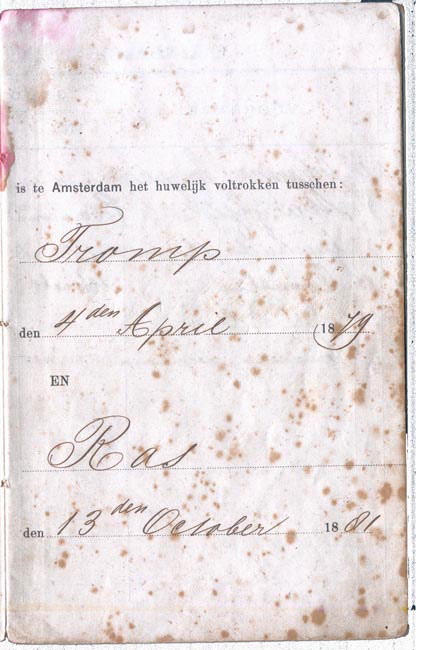 is te Amsterdam het huwelijk voltrokken tusschen:
Tromp
den 4den April 1879
EN
Ras
den 13den October 1881